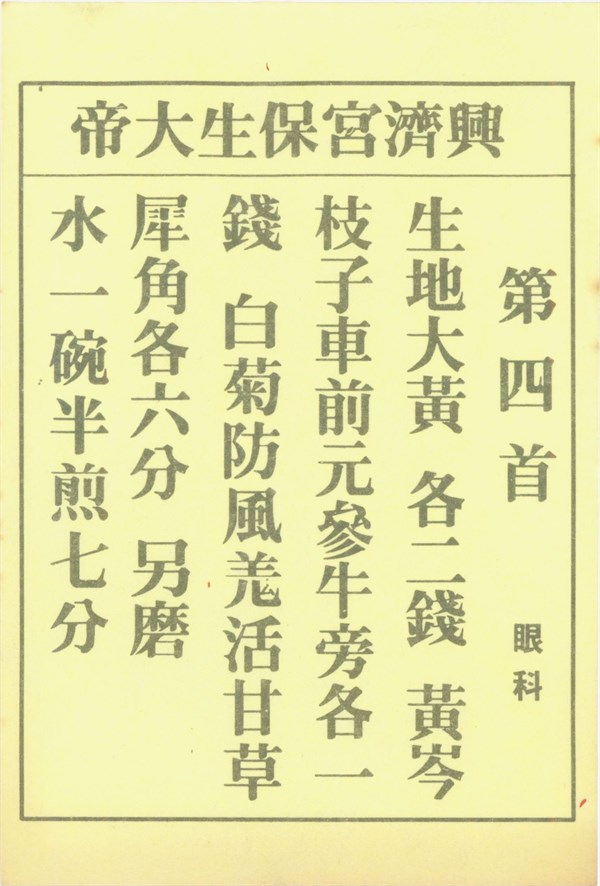 興濟宮保生大帝
第四首 眼科
生地大黃 各二錢 黃岑
枝子車前元參牛旁各一
錢 白菊防風羗活甘草
犀角各六分 另磨
水一碗半煎七分